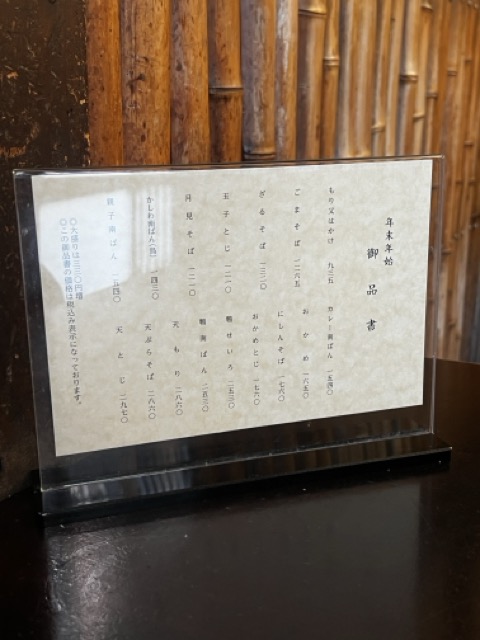 年末年始
御品書
もり又はかけ 九三五
ごまそば 一二六五
ざるそば 一三二〇
玉子とじ 一二一〇
月見そば 一二一〇
かしわ南ばん(鳥) 一四三〇
親子南ばん 一五四〇
カレー南ばん 一五四〇
おかめ 一六五〇
にしんそば 一七六〇
おかめとじ 一七六〇
鴨せいろ 二五三〇
鴨南ばん 二五三〇
天もり 二八六〇
天ぷらそば 二八六〇
天とじ 二九七〇
〇大盛りは三三〇円増
〇この御品書の価格は税込み表示になっております。